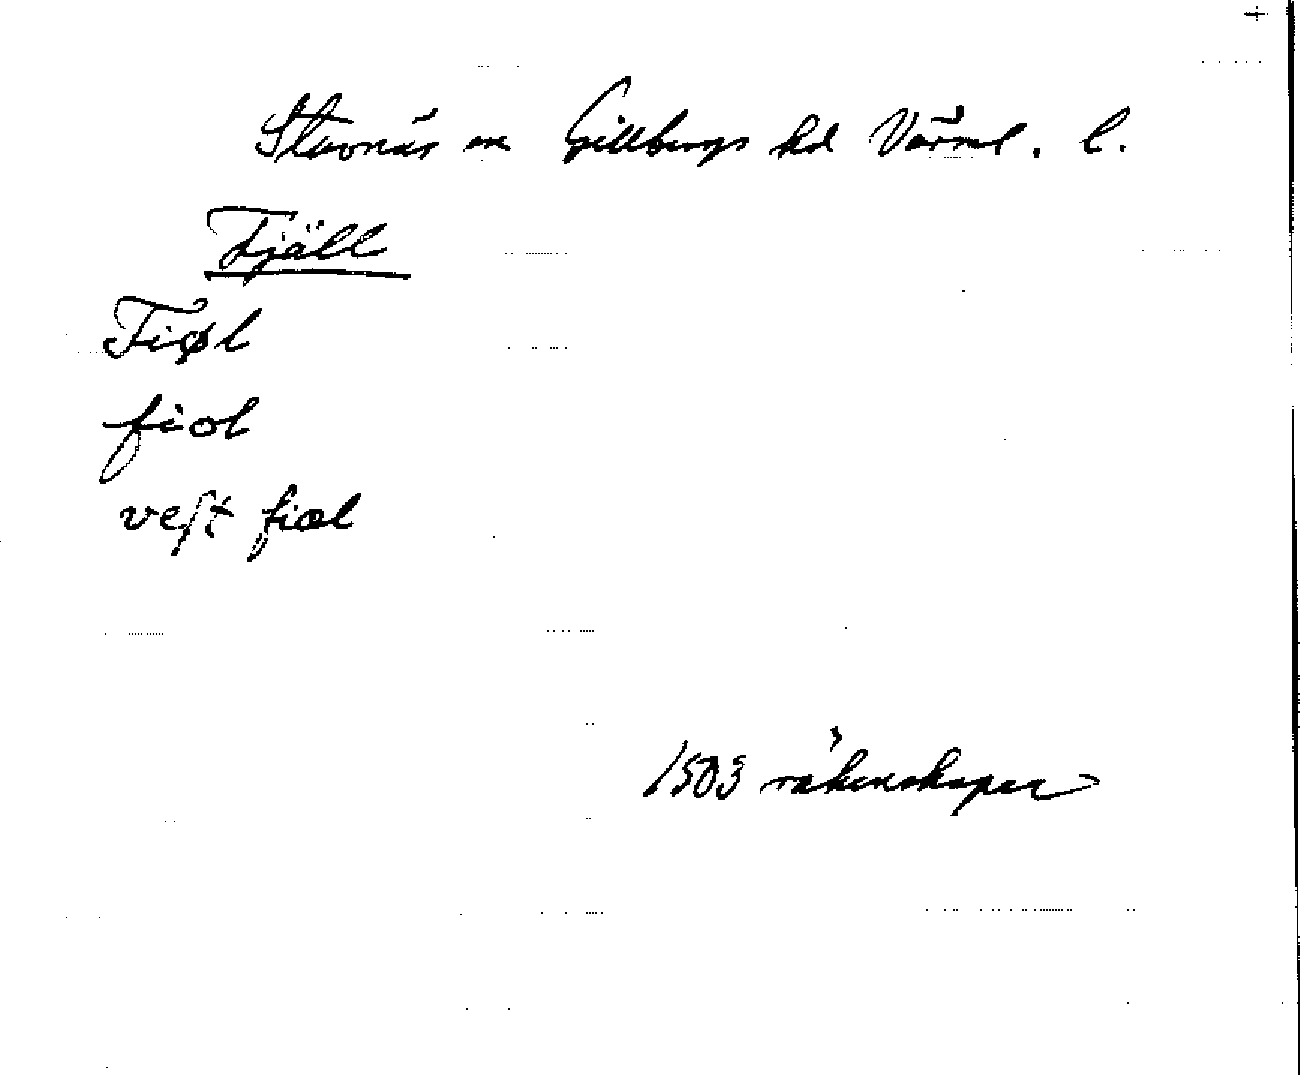 Stavnäs sn Gillbergs hd Värml. l.
Fjäll
Fiøl
fiol
veſt fiol
1503 räkenskaper